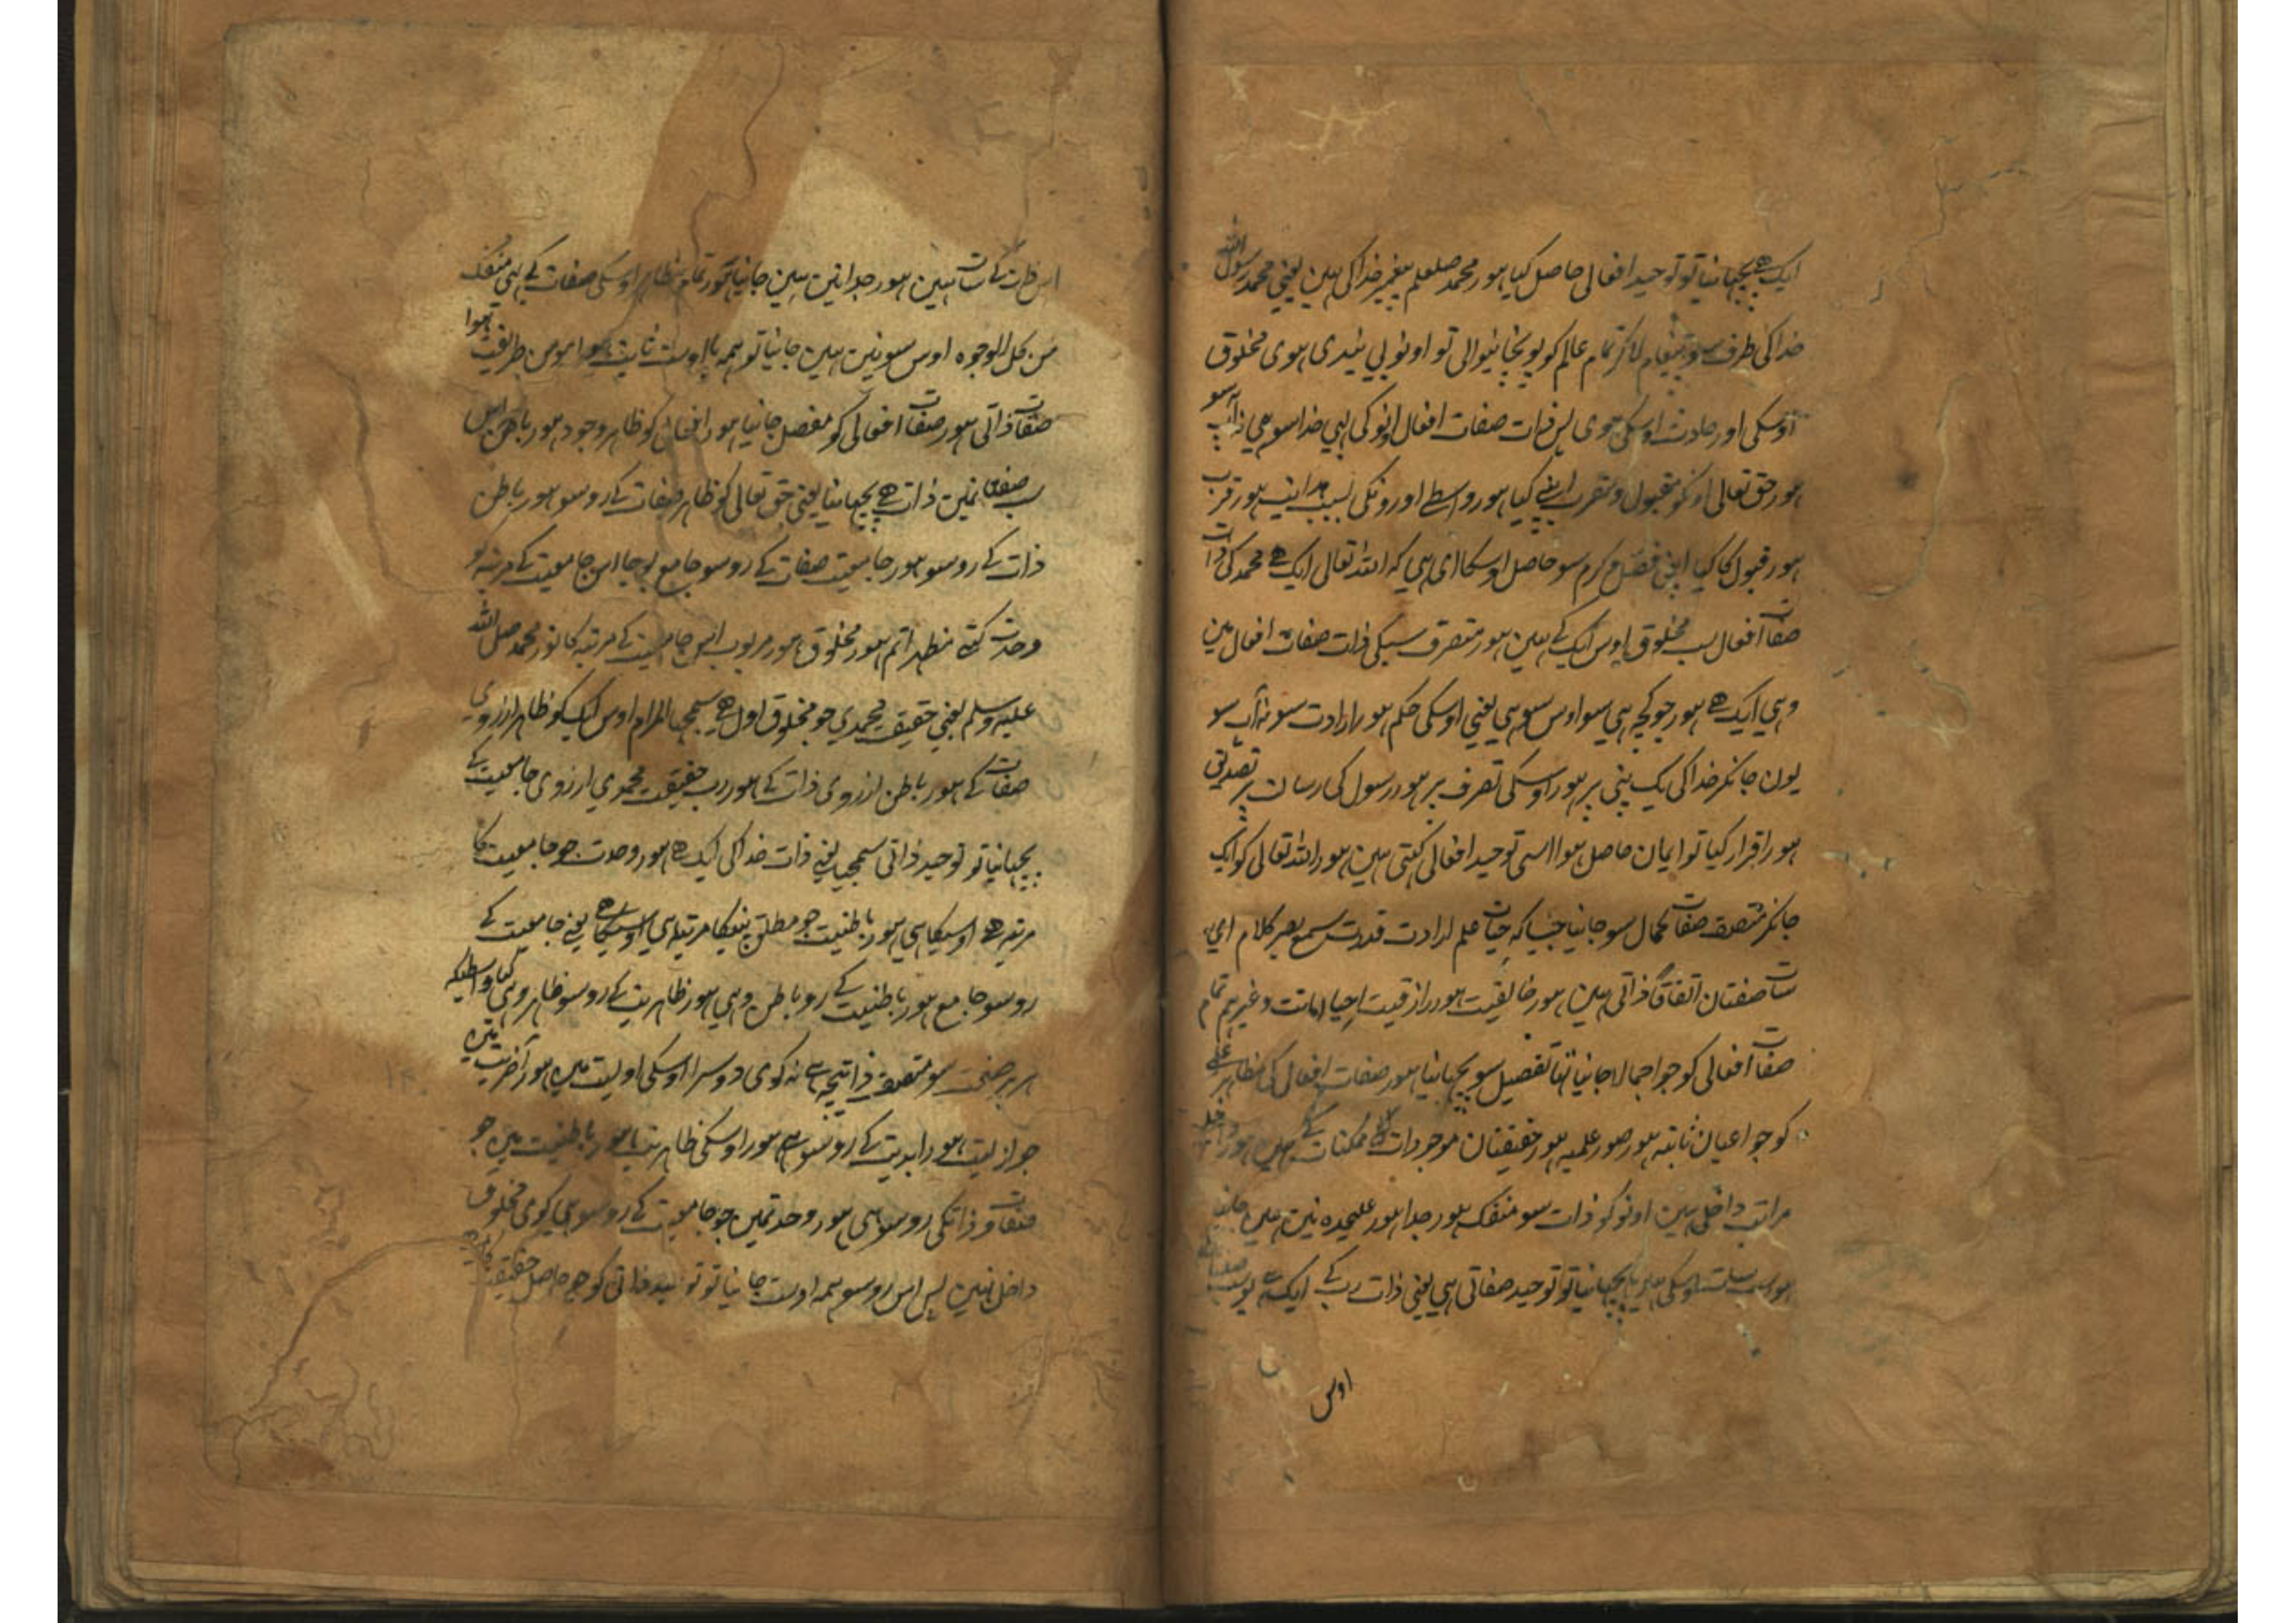 ایک ہے پچہانیا تو توحید افعالی حاصل کیا ہور محمد صلعم پیغمبر خدا کی ہین یعنی محمد رسول الله
خدا کی طرف سو پیغام لاکر تمام عالم کو پونچانیوالی تو اونو بی بندی ہوی مخلوق
اوسکی اور حادث اوسکی ہوی پس ذات صفات افعال اونو کی بہی خدا سو ہی نہ آپ سو
ہور حق تعالی اونکو مقبول و مقرب اپنے کیا ہور واسطے اورونکی سبب ہدایت ہور قرب
ہور قبول کا کیا اپنی فضل و کرم سو حاصل اوسکا ای ہی کہ الله تعالی ایک ہے محمد کی ذات
صفات افعال سب مخلوق اوس ایک کے ہین ہور متصرف سبکی ذات صفات افعال مین
وہی ایک ہے ہور جو کچہ ہی سو اوس سو ہی یعنی اوسکی حکم ہور ارادت سو نہ آپ سو
یون جانکر خدا کی یک پنی پر ہور اوسکی تصرف پر ہور رسول کی رسالت پر تصدیق
ہور اقرار کیا تو ایمان حاصل ہوا اسی توحید افعالی کہتی ہین ہور الله تعالی کو ایک
جانکر متصف صفات کمال سو جانیا جیسا کہ حیات علم ارادت قدرت سمع بصر کلام ای
سات صفتان اتفاقا ذاتی ہین ہور خالقیت ہور رازقیت احیا اماتت وغیرہم تمام
صفات افعالی کو جو اجمالا جانیا تہا تفصیل سو پچہانیا ہور صفات افعالی کی مظاہر
کو جو اعیان ثابتہ ہور صور علمیہ ہور حقیقتان موجودات ممکنات کے ہین ہور
مراتب داخلی ہین اونو کو ذات سو منفک ہور جدا ہور علیحدہ نین ہین جانیا
پچہانیا تو توحید صفاتی ہی یعنی ذات رب کے ایک ہے
اوس
اس ذات کے سات ہین ہور جدا نین ہین جانیا ہور تمام مظاہر اوسکی صفات کے بہی منفک
من کل الوجوہ اوس سو نین ہین جانیا تو ہمہ با اوست ثابت ہوا مومن طریقت ہوا
صفات ذاتی ہور صفات افعالی کو مفصل جانیا ہور افعال کو ظاہر وجود ہور باطن اس
سب صفتان مین ذات ہے پچہانیا یعنی حق تعالی کو ظاہر صفات کے رو سو ہور باطن
ذات کے رو سو ہور جامعیت صفات کے رو سو جامع بوجا اس جامعیت کے مرتبہ کو
وحدت کتے مظہر اتم ہور مخلوق ہور مربوب اس جامعیت کے مرتبہ کا نور محمد صلی الله
علیہ وسلم یعنی حقیقت محمدی جو مخلوق اول ہے سمجہا المرام اوس ایک کو ظاہر از روی
صفات کے ہور باطن از روی ذات کے ہور رب حقیقت محمدی از روی جامعیت کے
پچہانیا تو توحید ذاتی سمجہا یعنی ذات خدا کی ایک ہے ہور وحدت جو جامعیت کا
مرتبہ ہے اوسیکا ہی ہور باطنیت جو مطلق پنیکا مرتبہ ہی اوسیکا ہے یعنی جامعیت کے
رو سو جامع ہور باطنیت کے رو باطن وہی ہور ظاہریت کے رو سو ظاہر وہی
ہر ہر صفت سو متصف ذات ہے نہ کوی دوسرا اوسکی اولیت مین ہور آخریت
جو ازلیت ہور ابدیت کے رو سو ہے ہور اوسکی ظاہریت ہور باطنیت مین جو
صفات و ذاتکی رو سو ہی ہور وحدت مین جو جامعیت کے رو سو ہی کوی مخلوق
داخل نہین پس اس رو سو ہمہ اوست جانیا تو توحید ذاتی کو حاصل